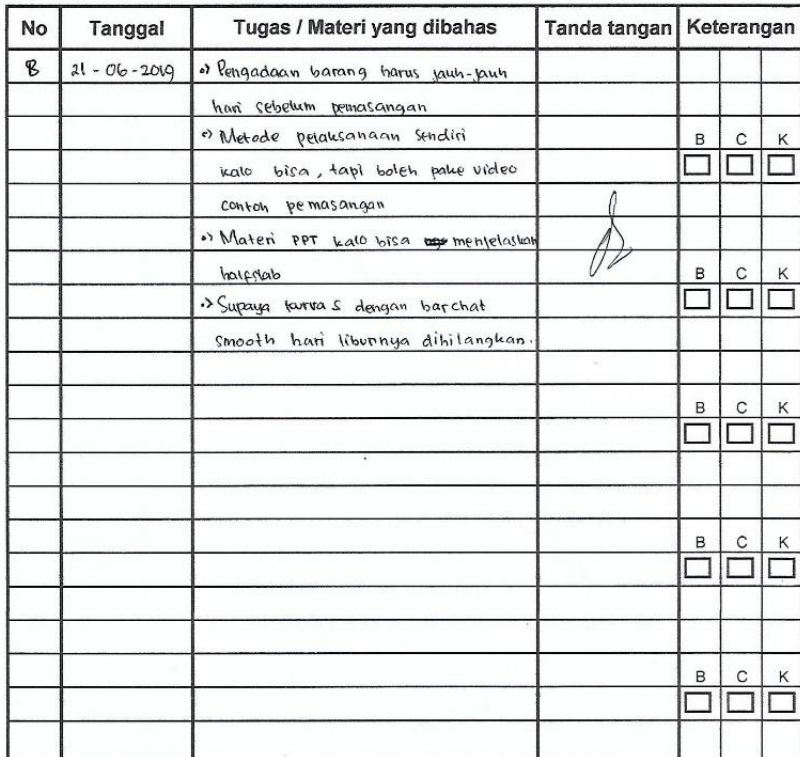 No Tanggal Tugas / Materi yang dibahas Tanda tangan Keterangan
8 21 - 06 - 2019 •) Pengadaan barang harus jauh-jauh
hari sebelum pemasangan
•) Metode pelaksanaan sendiri
B C K
kalo bisa, tapi boleh pake video
contoh pemasangan
•) Materi PPT kalo bisa menjelaskan
halfslab
B C K
•) Supaya kurva S dengan barchat
smooth hari liburnya dihilangkan.
B C K
B C K
B C K